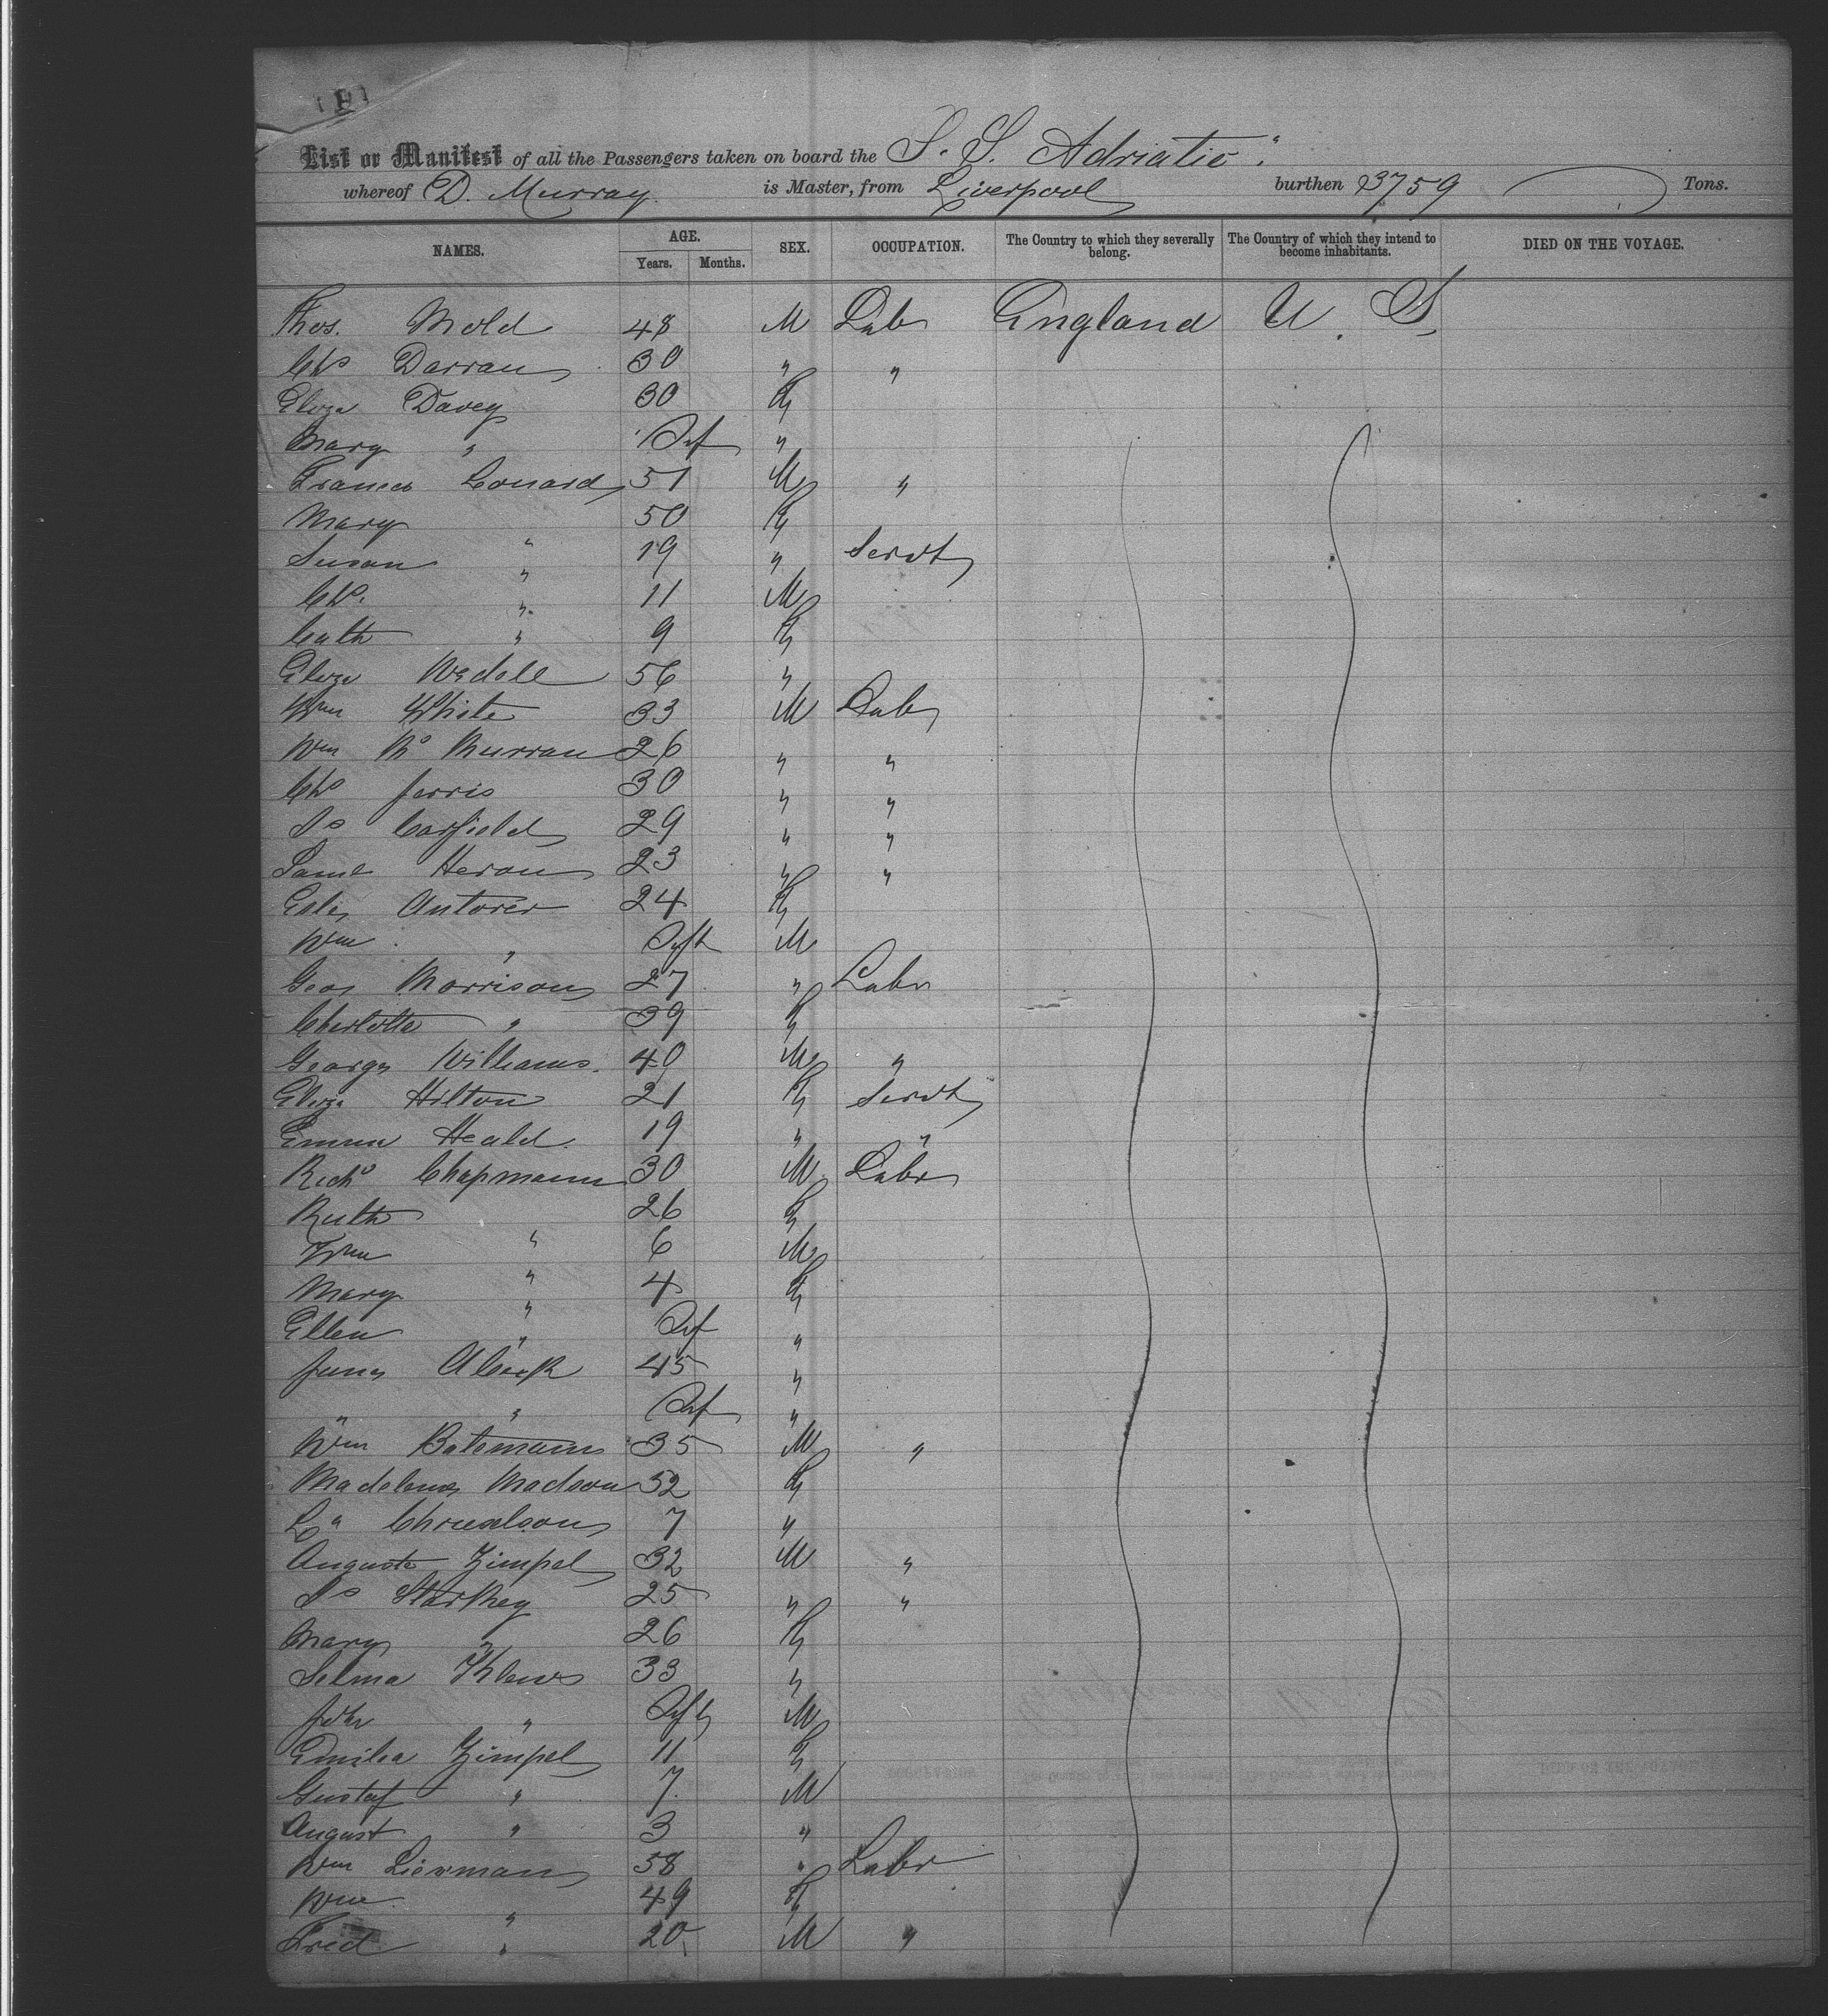 List or Manifest of all the Passengers taken on board the S. S. Adriatic
whereof D. Murray is Master, from Liverpool burthen 3759 Tons.
NAMES. AGE. Years. Months. SEX. OCCUPATION. The Country to which they severally belong. The Country of which they intend to become inhabitants. DIED ON THE VOYAGE.
Thos. Mold 48 M Labr England U. S.
Chs Darran 30 " "
Eliza Davey 30 F
Mary " Inf "
Francis Conard 51 M "
Mary " 50 F
Susan " 19 " Servt
Chs. " 11 M
Cath " 9 F
Eliza 56 "
Wm White 33 M Labr
Wm Mc Murran 26 " "
Chs Jarvis 30 " "
Js Carfield 29 " "
Saml Heron 23 " "
Antorer 24 F
Wm " Inft M
Geo Morrison 27 " Labr
Charlotte " 39 F
George Williams. 40 M "
Eliza Hilton 21 F Servt
Emma Heald. 19 " "
Richd Chapmann 30 M Labr
Ruth " 26 F
Wm " 6 M
Mary " 4 F
Ellen " Inf "
Jane 45 "
" " Inf "
Wm Batemann 35 M "
Madelena Madson 52 F
7 "
Auguste Zimpel 32 M "
Js Starkey 25 " "
Mary " 26 F
Selma Klews 33 "
" Inft M
Emilia Zimpel 11 F
Gustaf " 7 M
August " 3 "
Wm Lierman 58 " Labr
Wme " 49 F
Fred " 20 M "